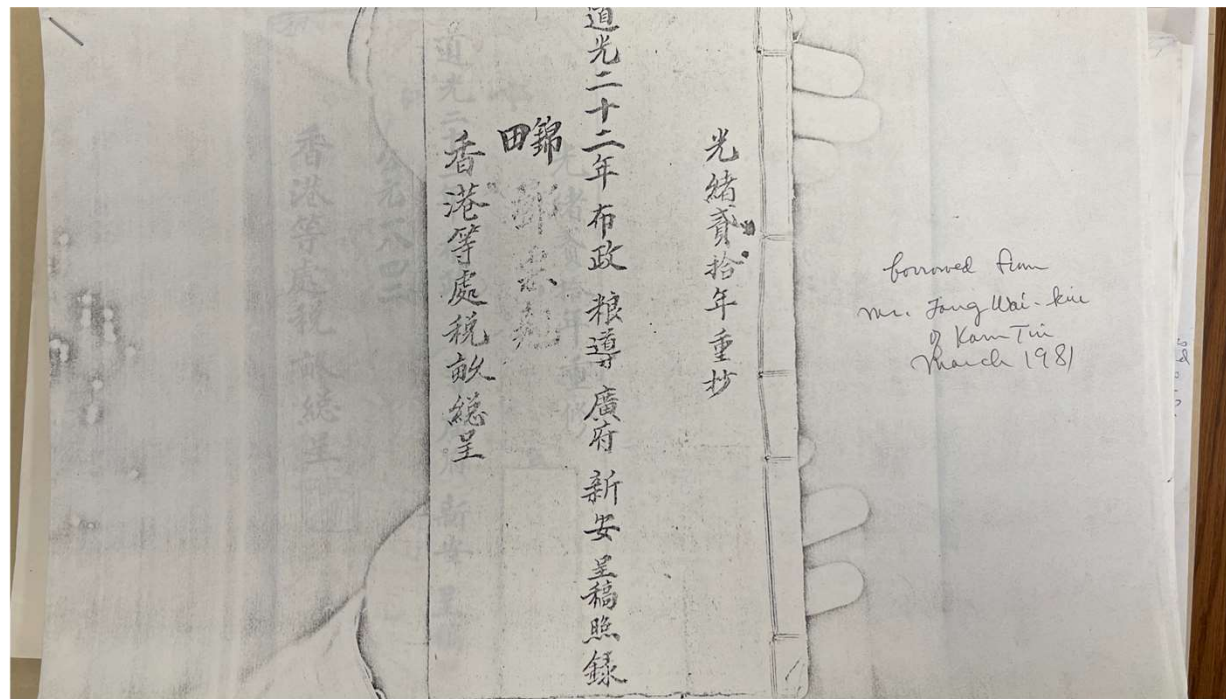 光緒貳拾年重抄
道光二十二年布政 粮導 廣府 新安 呈稿照錄
錦田
香港等處稅畝總呈
borrowed from
Mr. Tang Wai-kin
of Kam Tin
March 1981